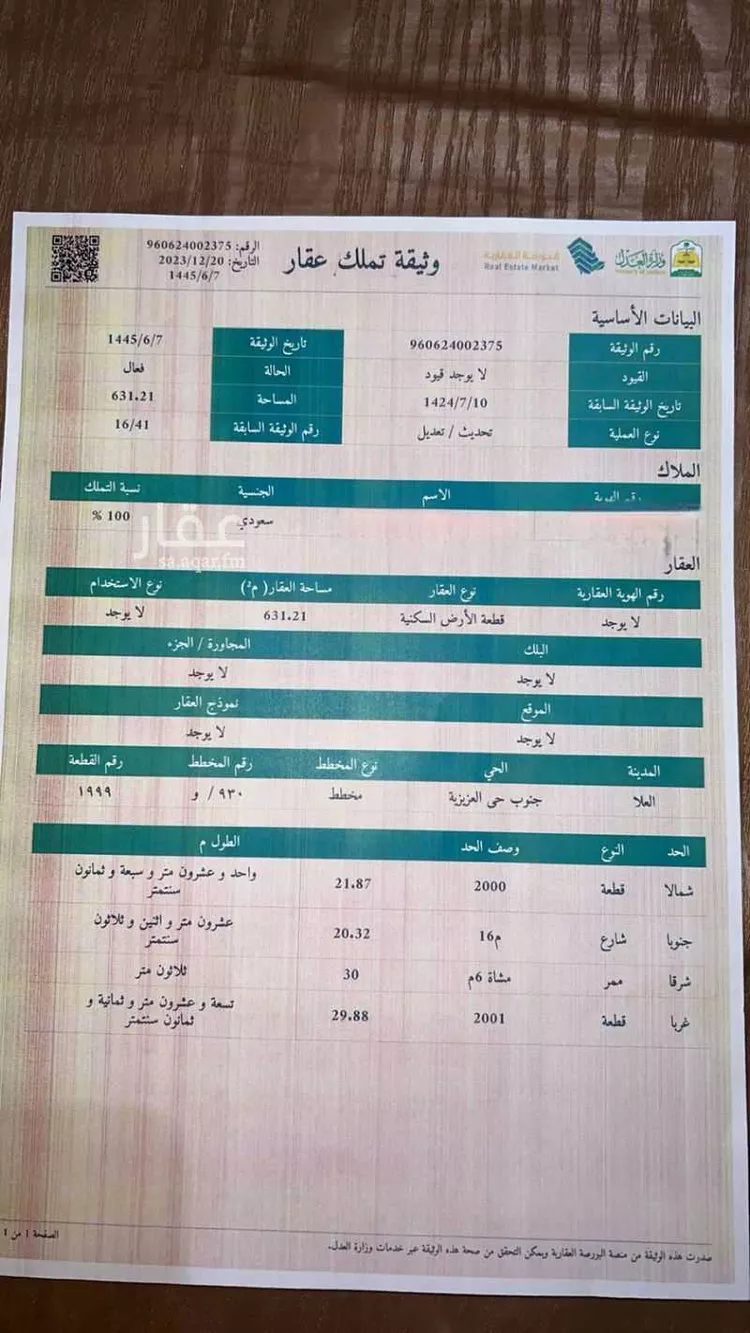 وزارة العدل
البورصة العقارية
Real Estate Market
وثيقة تملك عقار
الرقم: 960624002375
التاريخ: 2023/12/20
1445/6/7
البيانات الأساسية
رقم الوثيقة 960624002375 تاريخ الوثيقة 1445/6/7
القيود لا يوجد قيود الحالة فعال
تاريخ الوثيقة السابقة 1424/7/10 المساحة 631.21
نوع العملية تحديث / تعديل رقم الوثيقة السابقة 16/41
الملاك
رقم الهوية الاسم الجنسية نسبة التملك
سعودي 100 %
عقار
sa.aqar.fm
العقار
رقم الهوية العقارية نوع العقار مساحة العقار( م٢) نوع الاستخدام
لا يوجد قطعة الأرض السكنية 631.21 لا يوجد
البلك المجاورة / الجزء
لا يوجد لا يوجد
الموقع نموذج العقار
لا يوجد لا يوجد
المدينة الحي نوع المخطط رقم المخطط رقم القطعة
العلا جنوب حى العزيزية مخطط ٩٣٠ / و ١٩٩٩
الحد النوع وصف الحد الطول م
شمالا قطعة 2000 21.87 واحد و عشرون متر و سبعة و ثمانون
سنتمتر
جنوبا شارع م16 20.32 عشرون متر و اثنين و ثلاثون
سنتمتر
شرقا ممر مشاة 6م 30 ثلاثون متر
غربا قطعة 2001 29.88 تسعة و عشرون متر و ثمانية و
ثمانون سنتمتر
صدرت هذه الوثيقة من منصة البورصة العقارية ويمكن التحقق من صحة هذه الوثيقة عبر خدمات وزارة العدل.
الصفحة 1 من 1